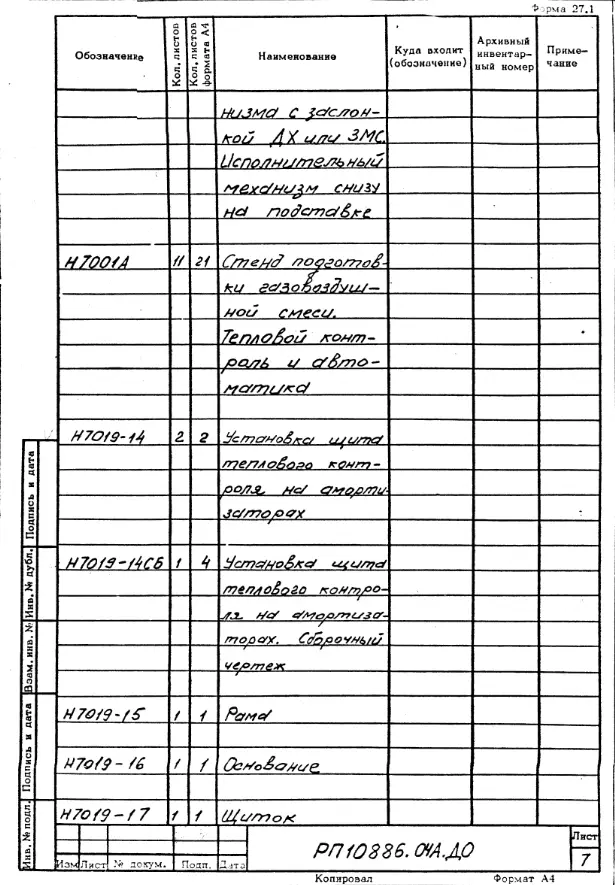 Форма 27.1
Обозначение Кол. листов Кол. листов формата А4 Наименование Куда входит (обозначение) Архивный инвентарный номер Примечание
низма с заслон-
кой ДХ или ЗМС.
Исполнительный
механизм снизу
на подставке
Н7001А 11 21 Стенд подготов-
ки газовоздуш-
ной смеси.
Тепловой конт-
роль и авто-
матика
Н7019-14 2 2 Установка щита
теплового конт-
роля на аморти-
заторах
Н7019-14СБ 1 4 Установка щита
теплового контро-
ля на амортиза-
торах. Сборочный
чертеж
Н7019-15 1 1 Рама
Н7019-16 1 1 Основание
Н7019-17 1 1 Щиток
Подпись и дата
Инв. № дубл.
Взам. инв. №
Подпись и дата
Инв. № подл.
РП10886.04А.ДО
Лист
7
Изм Лист № докум. Подп. Дата
Копировал Формат А4